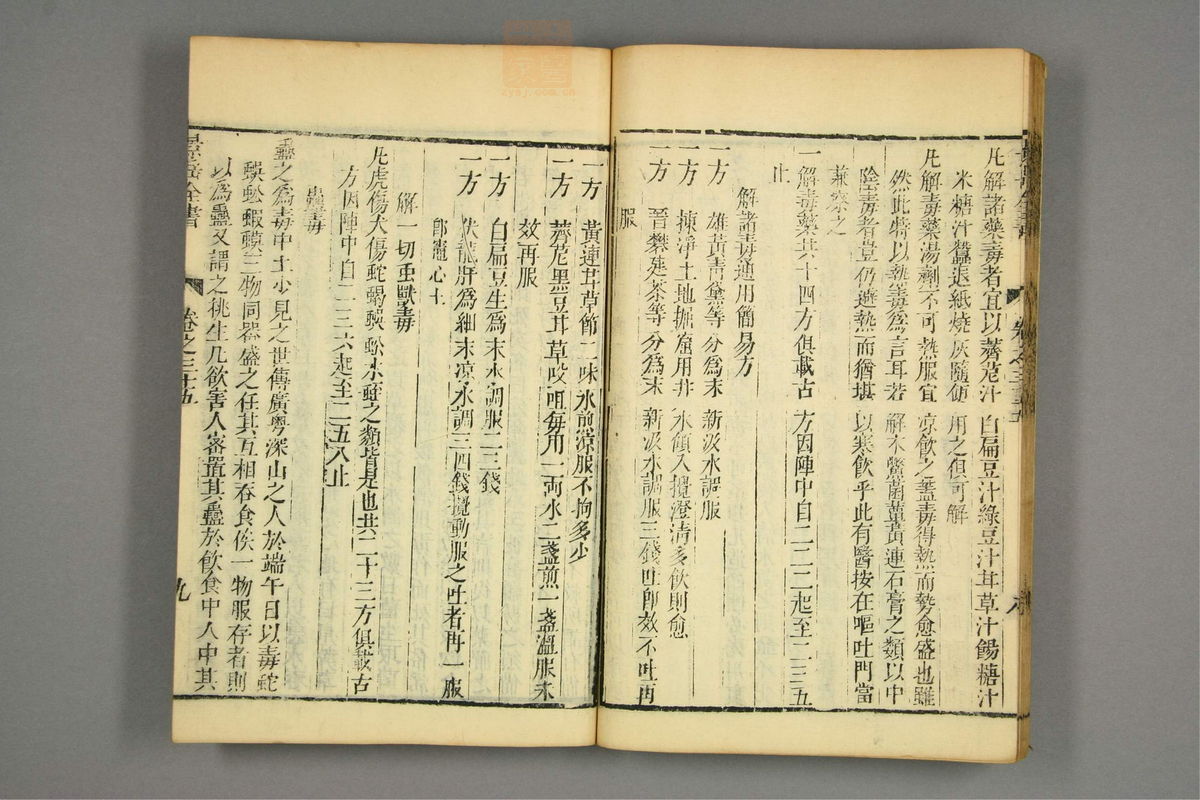 凡解諸藥毒者宜以薺苨汁白扁豆汁綠豆汁甘草汁餳糖汁
米糖汁蠶退紙燒灰隨便用之俱可解
凡解毒藥湯劑不可熱服宜涼飲之蓋毒得熱而勢愈盛也雖
然此特以熱毒爲言耳若解木鱉菌蕈黃連石膏之類以中
陰毒者豈仍避熱而猶堪以寒飲乎此有醫按在嘔吐門當
兼察之
一解毒藥共十四方俱載古方因陣中自二二二起至二三五
止
解諸毒通用簡易方
一方 雄黃青黛等分爲末新汲水調服
一方 揀淨土地掘窟用井水傾入攪澄清多飲則愈
一方 晉礬建茶等分爲末新汲水調服三錢吐卽效不吐再
服
一方 黃連甘草節二味水煎涼服不拘多少
一方 薺苨黑豆甘草㕮咀每用一兩水二盞煎一盞溫服未
效再服
一方 白扁豆生爲末水調服二三錢
一方 伏龍肝爲細末凉水調三四錢攪動服之吐者再一服
卽竈心土
解一切蟲獸毒
凡虎傷犬傷蛇蝎蜈蚣水蛭之類皆是也共二十三方俱載古
方因陣中自二三六起至二五八止
蠱毒
蠱之爲毒中土少見之世傳廣粵深山之人於端午日以毒蛇
蜈蚣蝦蟆三物同器盛之任其互相吞食俟一物服存者則
以爲蠱又謂之挑生凡欲害人密置其蠱於飲食中人中其
景岳全書 卷之三十五 九